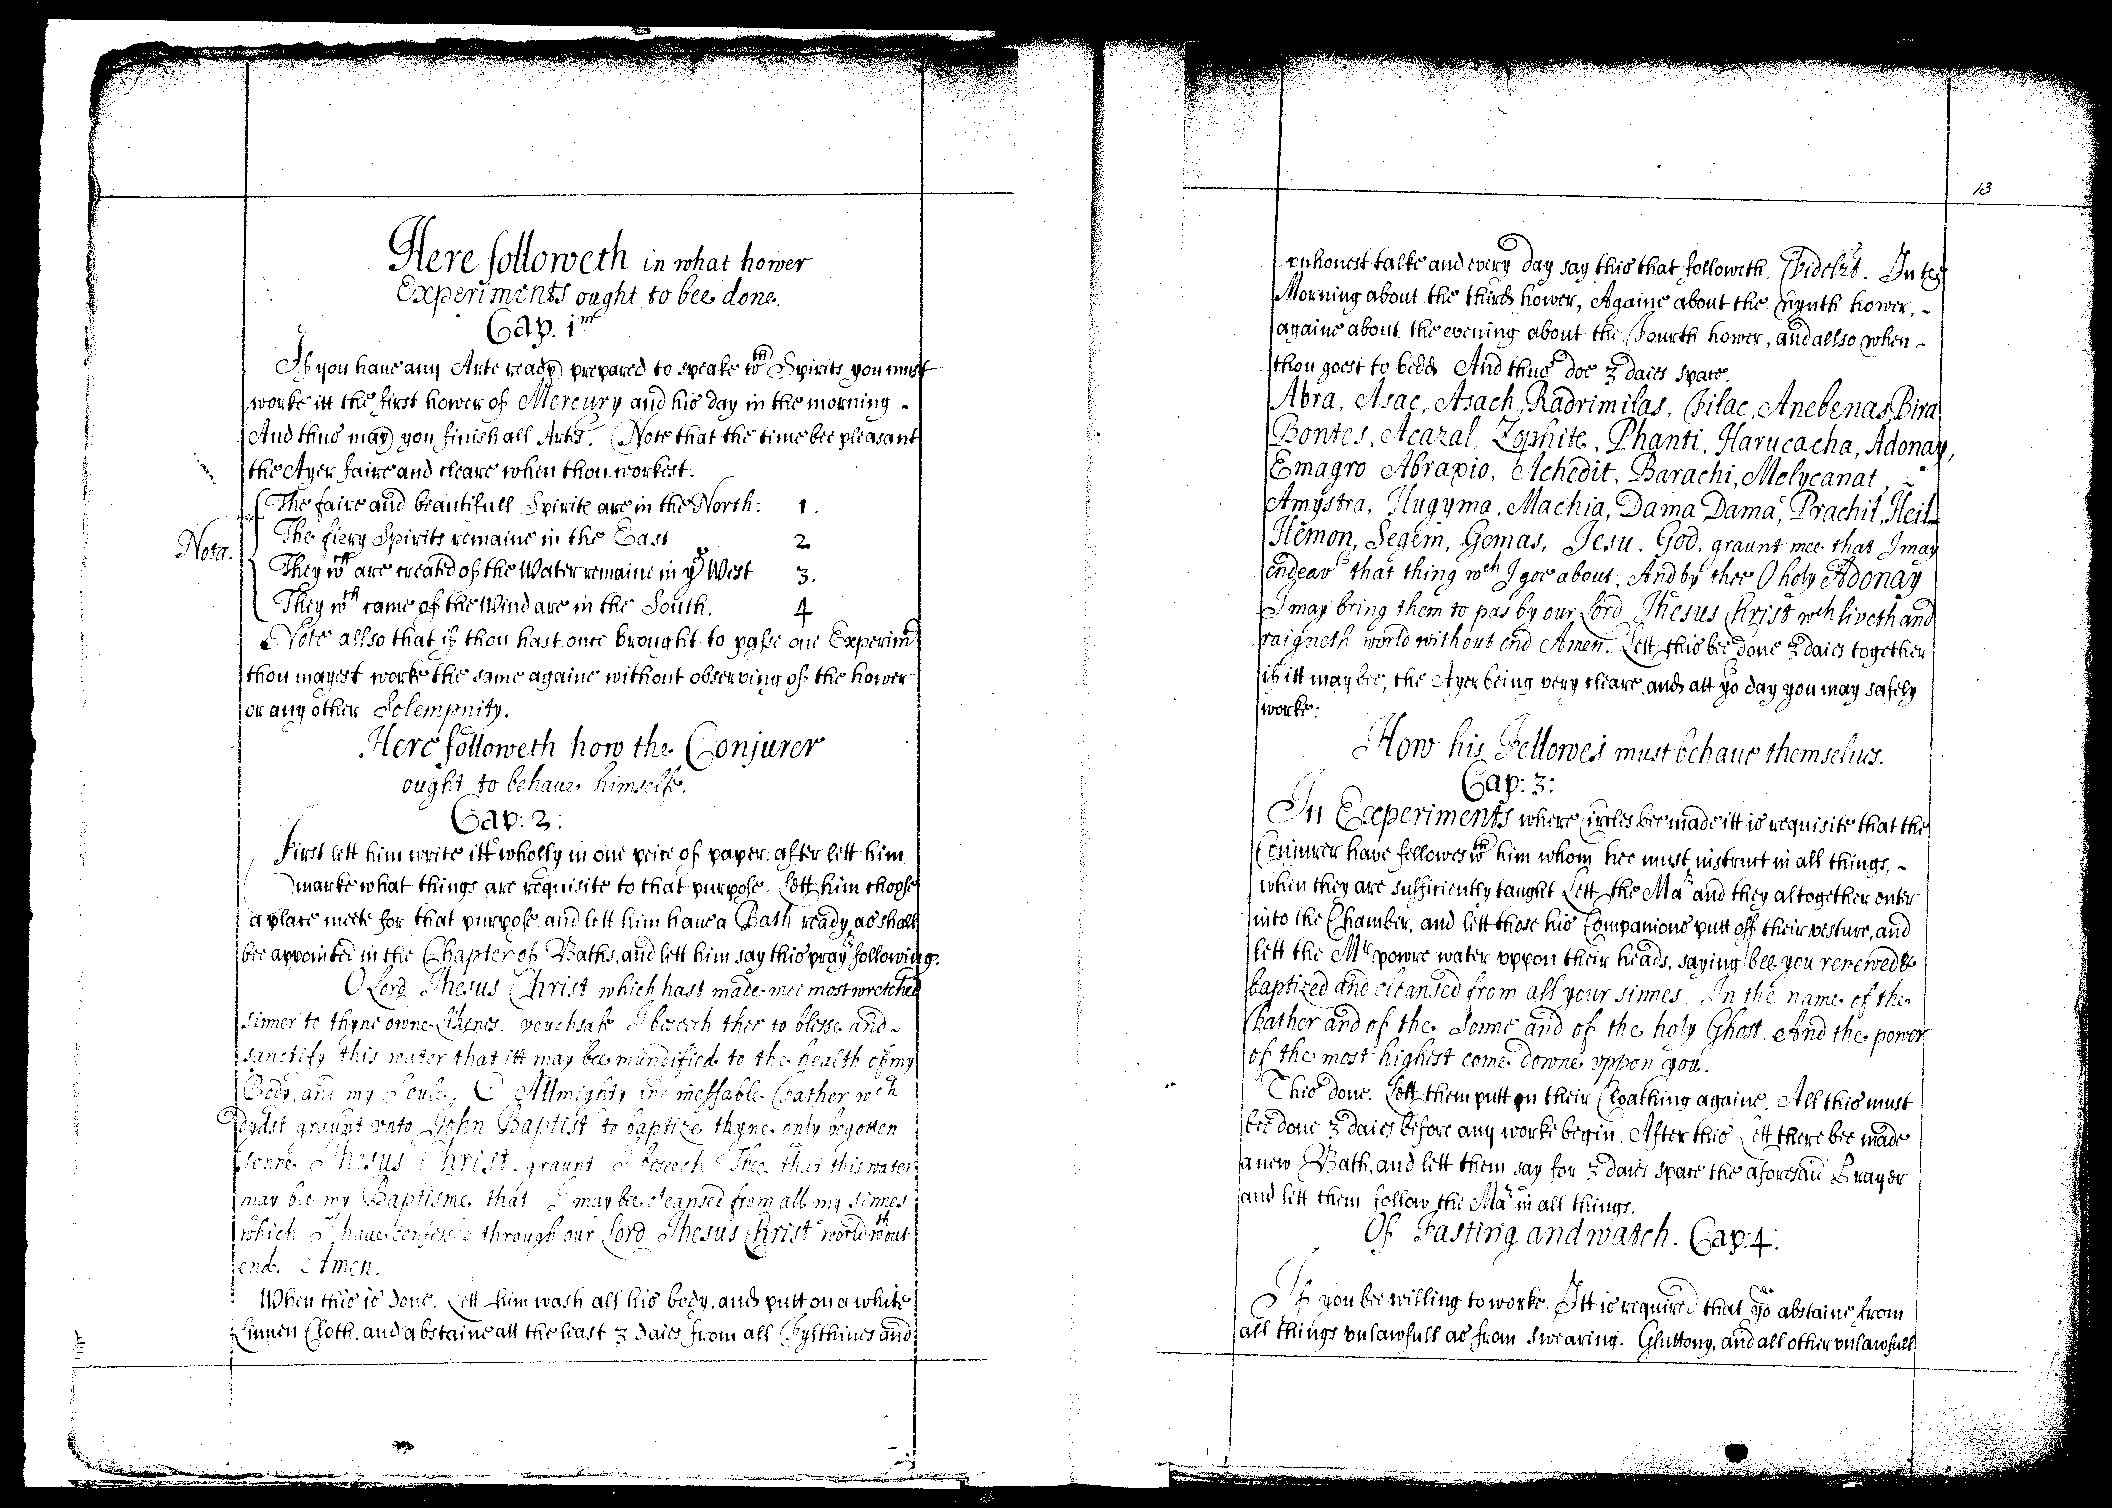 Here followeth in what hower
Experiments ought to bee done.
Cap. 1m
If you have any Arte ready prepared to speake wth Spirits you must
worke itt the first hower of Mercury and his day in the morning -
And thus may you finish all Arts. Note that the time bee pleasant
the Ayer faire and cleare when thou workest.
The faire and beautifull Spirits are in the North: 1.
The fiery Spirits remaine in the East 2
Nota.
They wch are created of the Water remaine in ye West 3.
They wch came of the Wind are in the South. 4
Note allso that if thou hast once brought to passe one Experimt
thou mayest worke the same againe without observing of the hower
or any other Solempnity.
Here followeth how the Conjurer
ought to behave himselfe.
Cap: 2:
First lett him write itt wholly in one peice of paper. after lett him
marke what things are requisite to that purpose. Lett him choose
a place meete for that purpose and lett him have a Bath ready as shall
bee appointed in the Chapter of Baths, and lett him say this prayr following.
O Lord Jhesus Christ which hast made mee most wretched
sinner to thyne owne vouchsafe I beseech thee to blesse and -
sanctify this water that itt may bee mundified to the health of my
Body, and my Soule, O Allmighty and ineffable Father wch
dydst graunt unto John Baptist to baptize thyne only begotten
sonne Jhesus Christ. graunt I beseech Thee that this water
may bee my Baptisme that I may be cleansed from all my sinnes
which I have confessed through our Lord Jhesus Christ world wthout
end. Amen.
When this is done. Lett him wash all his body, and putt on a white
Linnen Cloth, and abstaine att the least 3 daies from all Fylthines and
13
unhonest talke and every day say this that followeth. Videlzt. In the
Morning about the third hower, Againe about the Nynth hower, -
againe about the evening about the Fourth hower, and allso when -
thou goest to bedd. And thus doe 3 daies space.
Abra, Asac, Asach, Radrimilas, Filac, Anebenas, Bira
Bontes, Acazal, Zophite, Phanti, Harucacha, Adonay,
Emagro Abraxio, Achedit, Barachi, Melycanat,
Amystra, Hugyma, Machia, Dama Dama, Prachil, Heil
Hemon, Segem, Gemas, Jesu. God, graunt mee that I may
endeavr that thing wch I goe about. And by thee O holy Adonay
I may bring them to pas by our Lord Jhesus Christ wch liveth and
raigneth world without end Amen. Lett this bee done 3 daies together
if itt may bee, the Ayer being very cleare and att yt day you may safely
worke:
How his Fellowes must behave themselves.
Cap: 3:
In Experiments where Circles bee made itt is requisite that the
Coniurer have fellowes wth him whom hee must instruct in all things, -
when they are sufficiently taught Lett the Mar and they altogether enter
into the Chamber, and lett those his Companions putt off their vesture, and
lett the Mr powre water uppon their heads, saying bee you renewed &
baptized and cleansed from all your sinnes. In the name of the
Father and of the Sonne and of the holy Ghost. And the power
of the most highest come downe uppon you.
This done. Lett them putt on their Cloathing againe. All this must
bee done 3 daies before any worke begin. After this Lett there bee made
a new Bath, and lett them say for 3 daies space the aforesaid Prayer
and lett them follow the Mar in all things.
Of Fasting and watch. Cap: 4:
If you bee willing to worke. Itt is required that you abstaine from
all things unlawfull as from swearing. Gluttony, and all other unlawfull